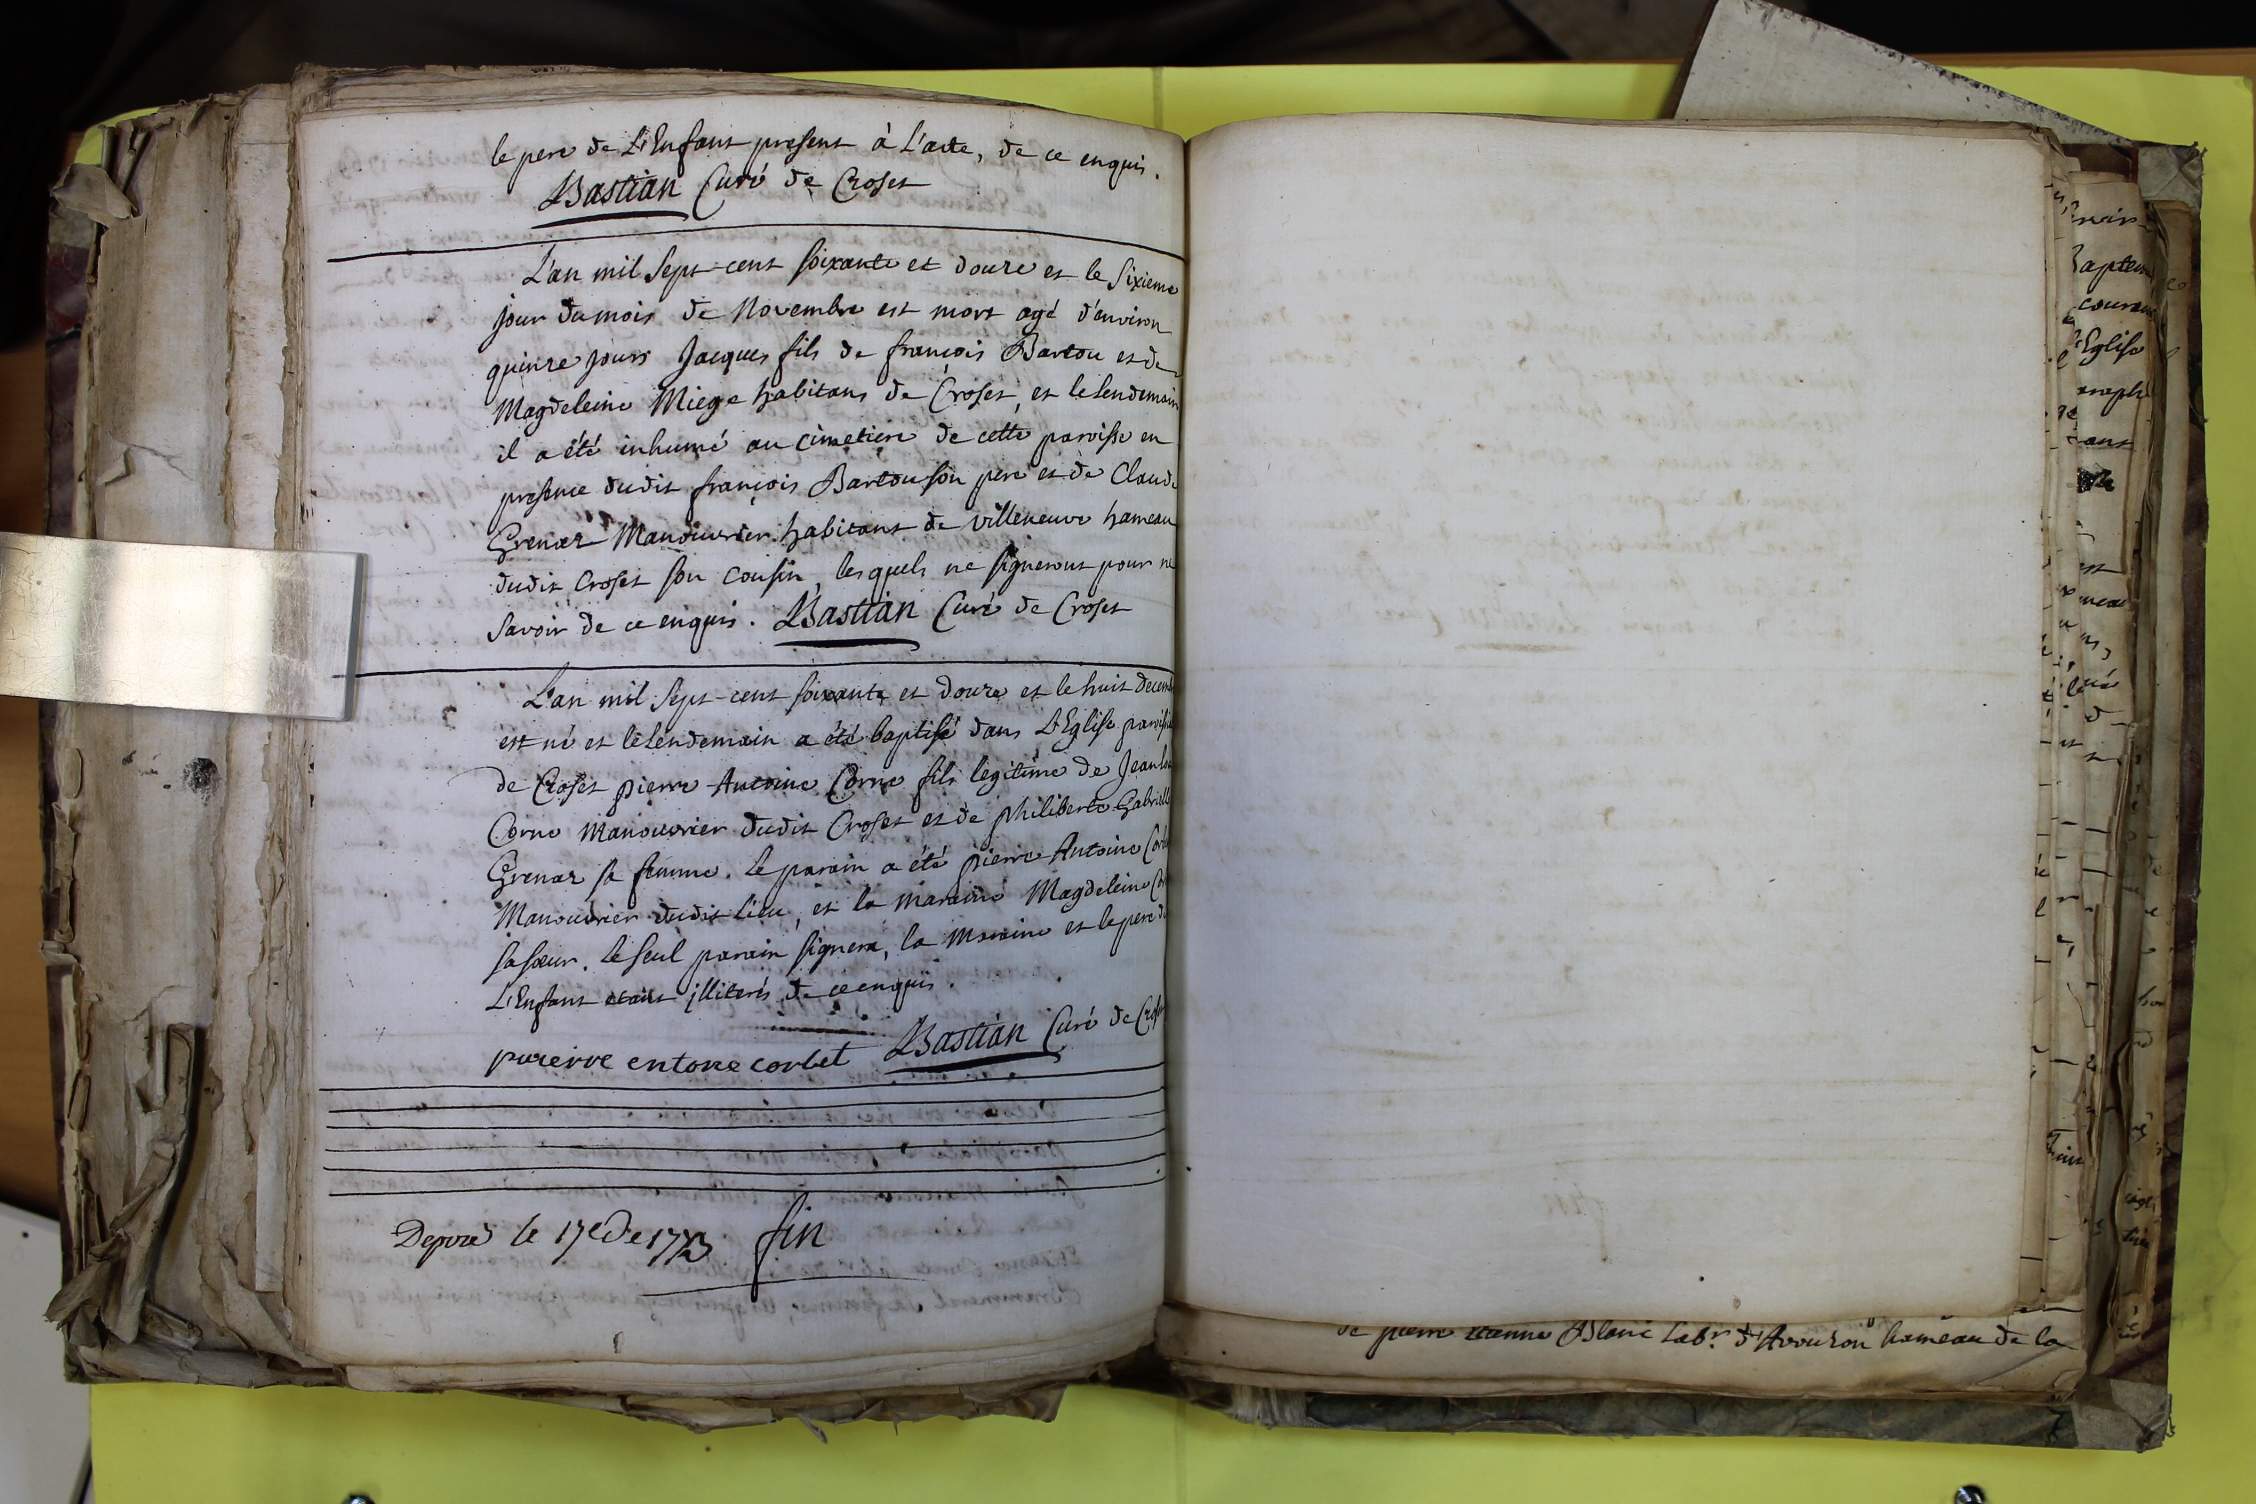 le pere de L'Enfant present à L'acte, de ce enquis.
Bastian Curé de Croset
L'an mil Sept-cent soixante et douze et le sixieme
jour du mois de Novembre est mort agé d'environ
quinze jours Jacques fils de françois Bartou et de
Magdeleine Miege habitans de Croset, et le lendemain
il a été inhumé au cimetiere de cette paroisse en
presence dudit françois Bartou son pere et de Claude
Grenaz Manouvrier habitant de villeneuve hameau
dudit Croset son cousin, lesquels ne signeront pour ne
Savoir de ce enquis. Bastian Curé de Croset
L'an mil Sept-cent soixante et douze et le huit decemb
est né et le lendemain a été baptisé dans L'Eglise paroissia
de Croset pierre Antoine Corne fils legitime de Jean
Corne Manouvrier dudit Croset et de philiberte Gabrielle
Grenaz sa femme. le parain a été pierre Antoine
Manouvrier dudit lieu, et la maraine Magdeleine
sa sœur. le seul parain signera, la maraine et le pere de
L'Enfant etant illiterés de ce enquis.
puierre entone corbet Bastian Curé de Croset
Deposé le 17e De 1773 fin
de pierre Etienne Blanc Labr. d'Avouzon hameau de la